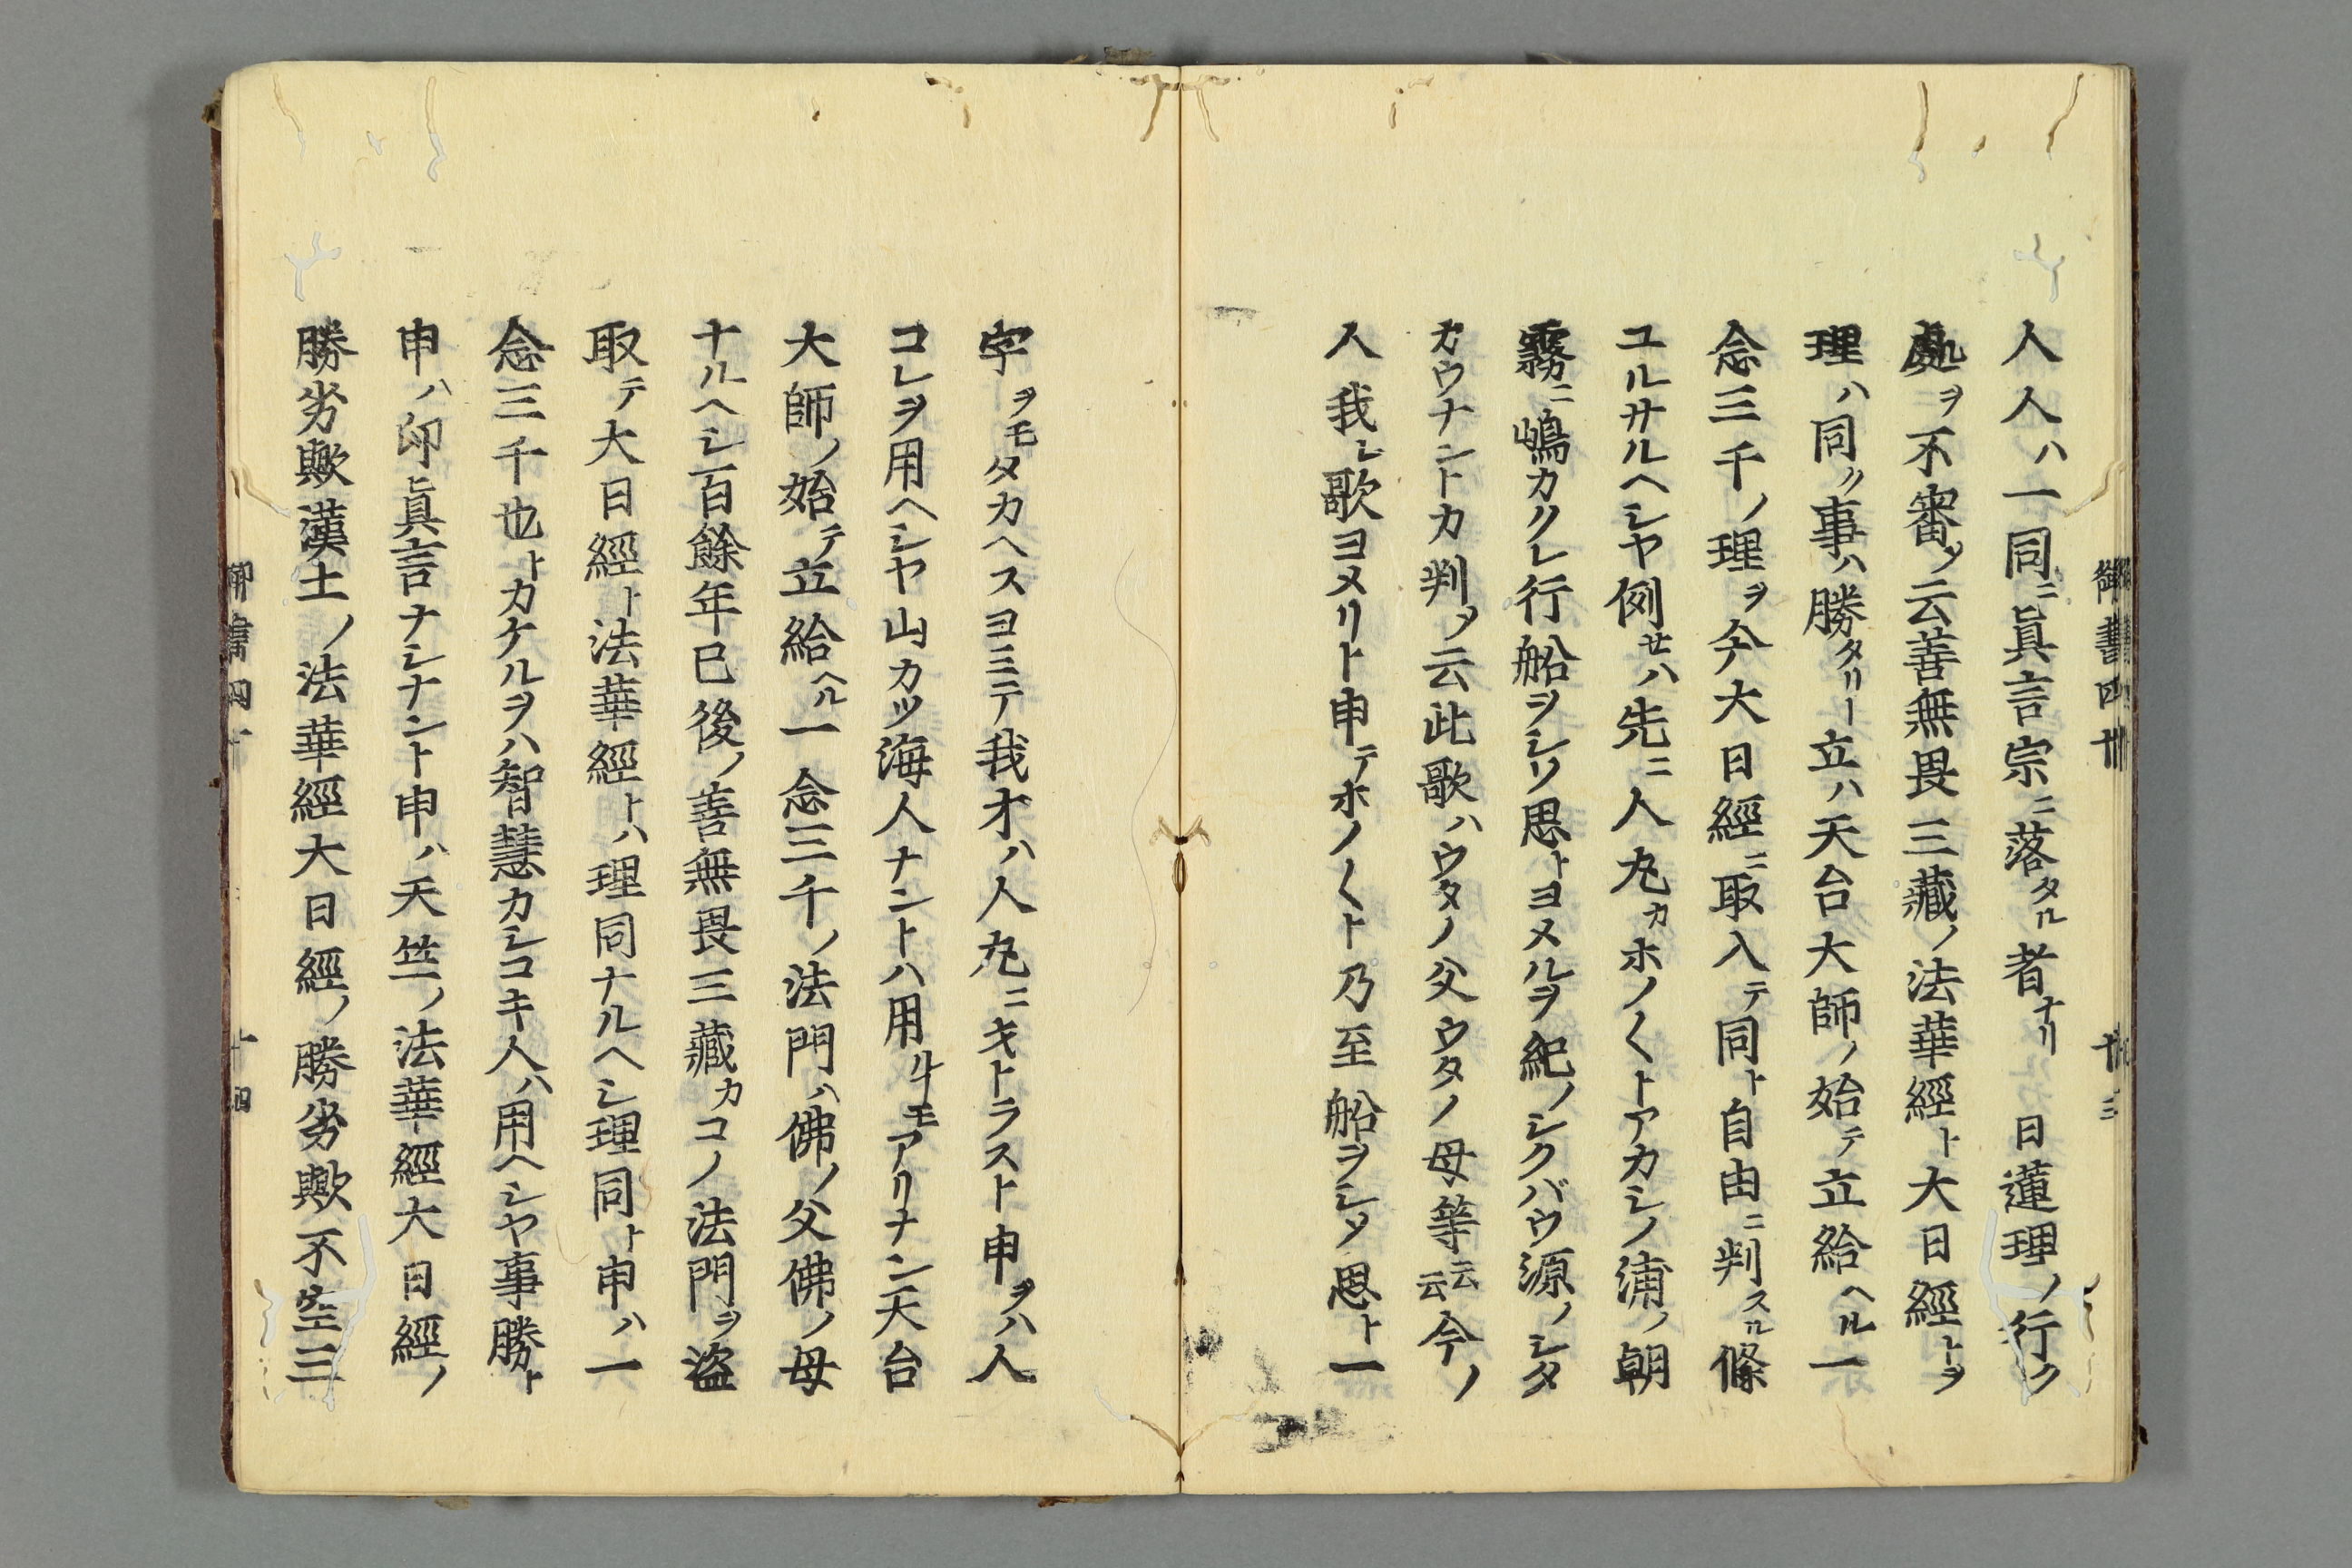 人人ハ一同ニ眞言宗ニ落タル者ナリ　日蓮理ノ行ク
處ヲ不審メ云善無畏三藏ノ法華經ト大日經トヲ
理ハ同ク事ハ勝タリト立ハ天台大師ノ始テ立給ヘル一
念三千ノ理ヲ今大日經ニ取入テ同ト自由ニ判スル條
ユルサルヘシヤ例セハ先ニ人丸カホノ〱トアカシノ浦ノ朝
霧ニ嶋カクレ行船ヲシソ思トヨメルヲ紀ノシクバウ源ノシタ
カウナントカ判メ云此歌ハウタノ父ウタノ母等云云今ノ
人我レ歌ヨメリト申テホノ〱ト乃至船ヲシソ思ト一
字ヲモタカヘスヨミテ我才ハ人丸ニヲトラスト申ヲハ人
コレヲ用ヘシヤ山カツ海人ナントハ用ルモアリナン天台
大師ノ始テ立給ヘル一念三千ノ法門ハ佛ノ父佛ノ母
ナルヘシ百餘年已後ノ善無畏三藏カコノ法門ヲ盜
取テ大日經ト法華經トハ理同ナルヘシ理同ト申ハ一
念三千也トカケルヲハ智慧カシコキ人ハ用ヘシヤ事勝ト
申ハ印眞言ナシナント申ハ天竺ノ法華經大日經ノ
勝劣歟漢土ノ法華經大日經ノ勝劣歟不空三
御書四
十四